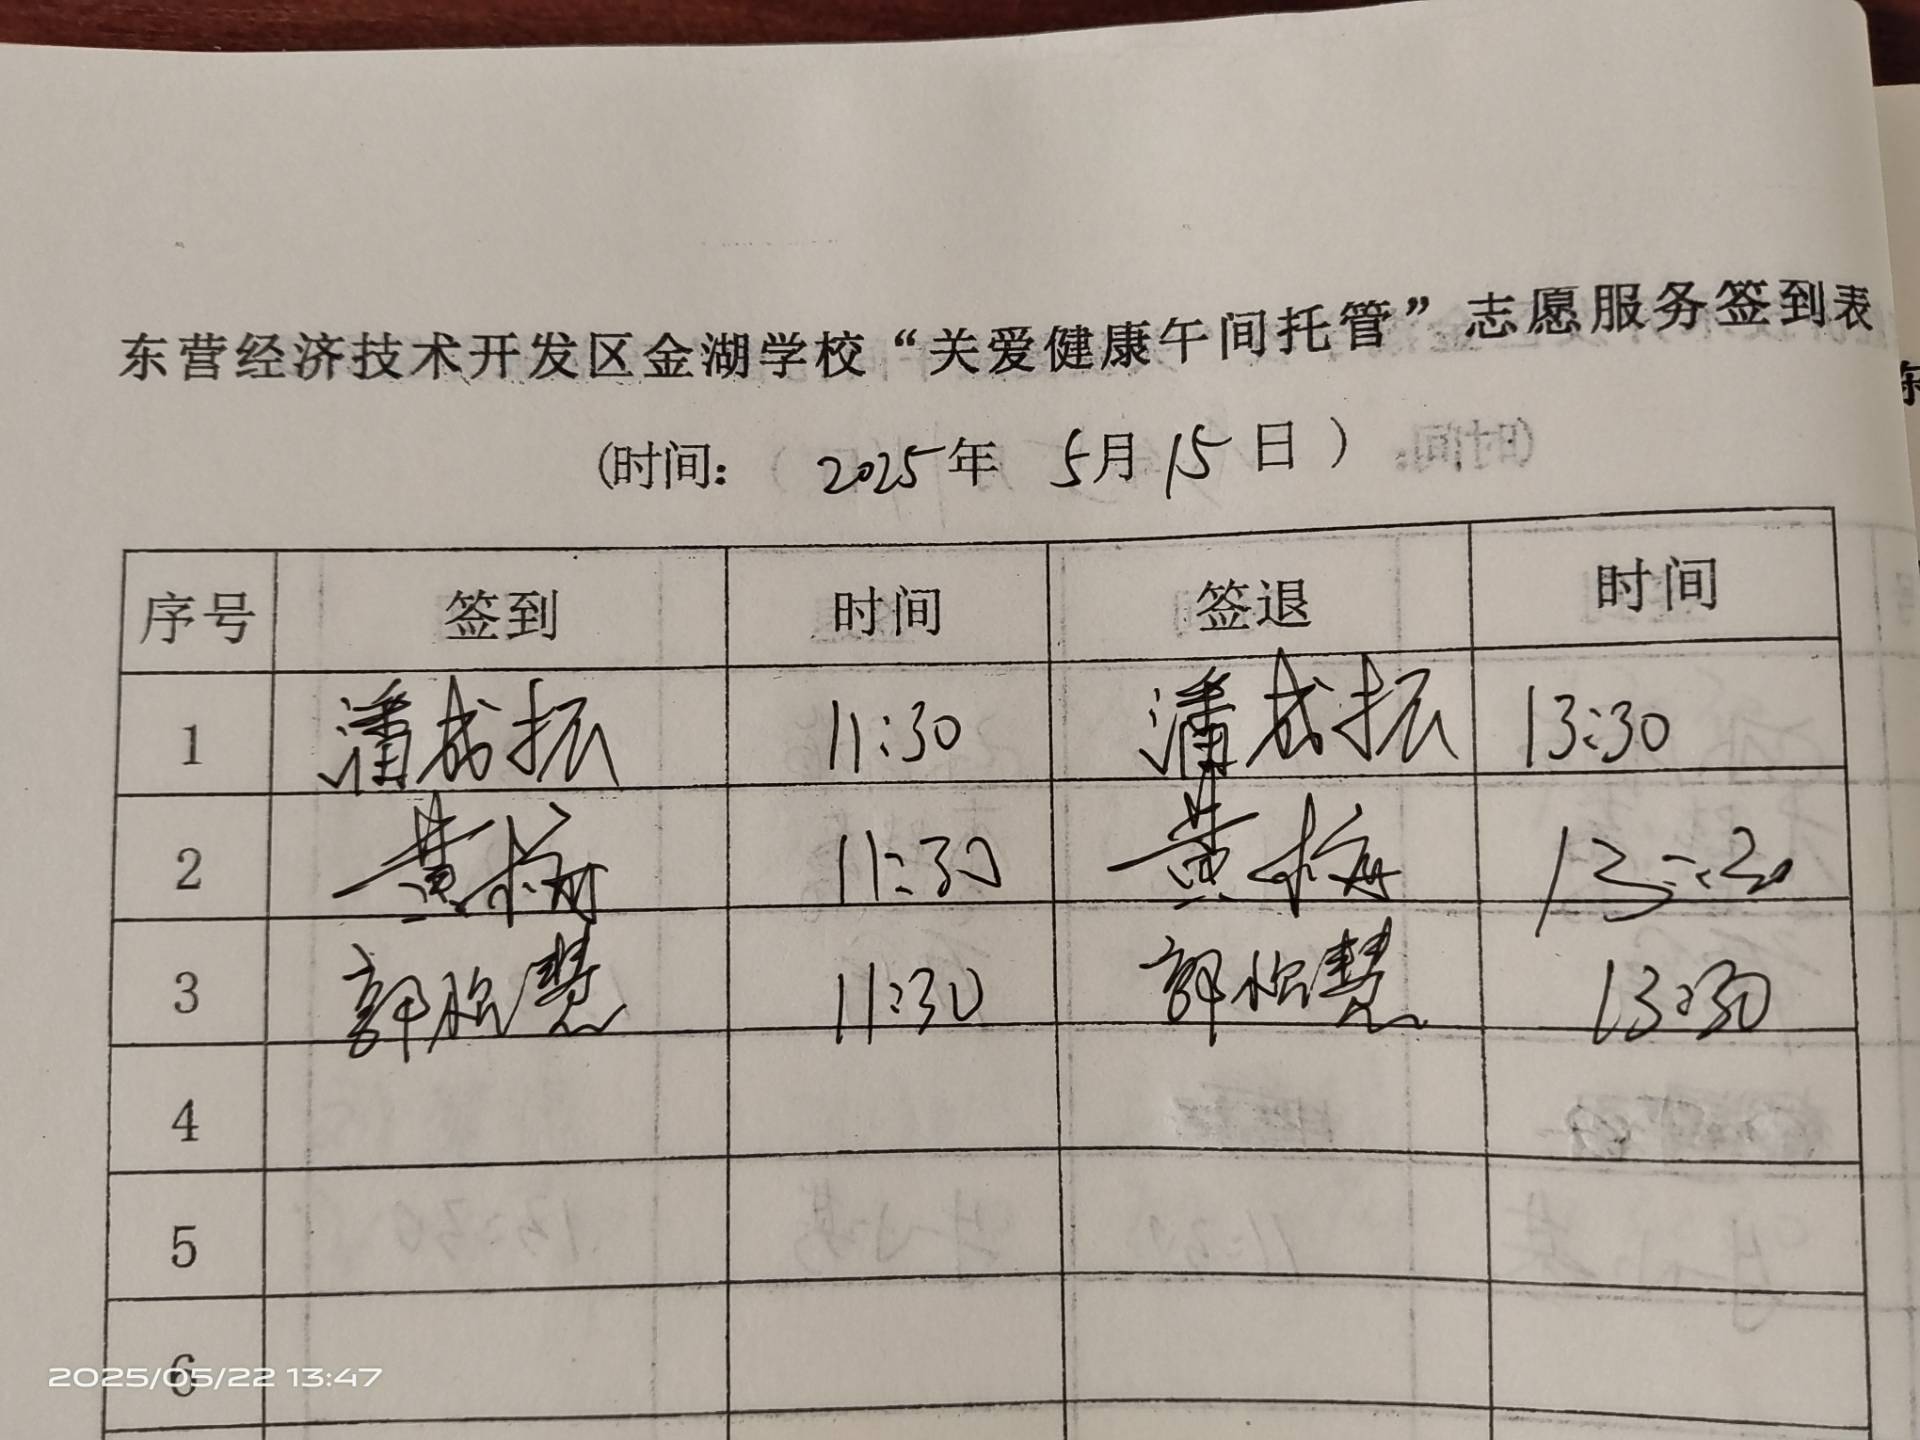 东营经济技术开发区金湖学校“关爱健康午间托管”志愿服务签到表
(时间: 2025年 5月15日)
序号 签到 时间 签退 时间
1 潘成振 11:30 潘成振 13:30
2 黄梅 11:30 黄梅 13:30
3 郭怡慧 11:30 郭怡慧 13:30
4
5
6
2025/05/22 13:47
东